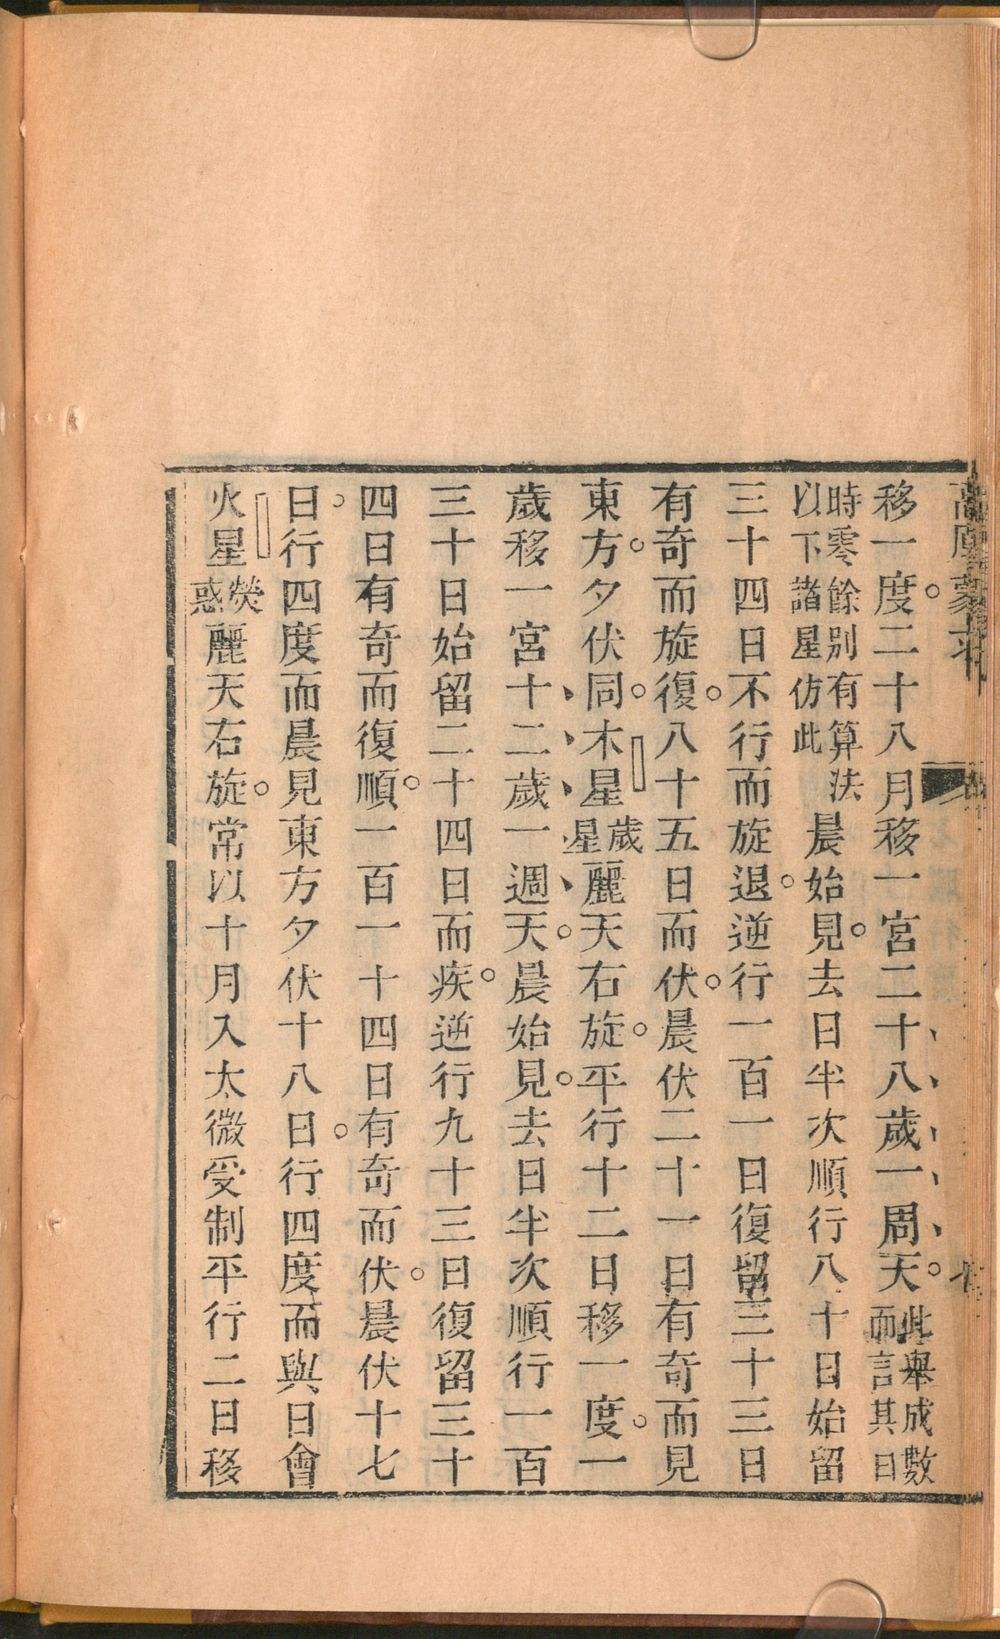 移一度。二十八月移一宮二十八歲一周天。此舉成數而言其日
時零餘別有算法以下諸星仿此晨始見。去日半次順行八十日始留
三十四日不行而旋退。逆行一百一日復留三十三日
有奇而旋復。八十五日而伏。晨伏二十一日有奇而見
東方。夕伏同。木星歲星麗天右旋。平行十二日移一度。一
歲移一宮十二歲一週天。晨始見。去日半次順行一百
三十日始留二十四日而疾。逆行九十三日復留三十
四日有奇而復順。一百一十四日有奇而伏。晨伏十七
日。行四度而晨見東方夕伏十八日。行四度而與日會
火星熒惑麗天右旋。常以十月入太微受制平行二日移